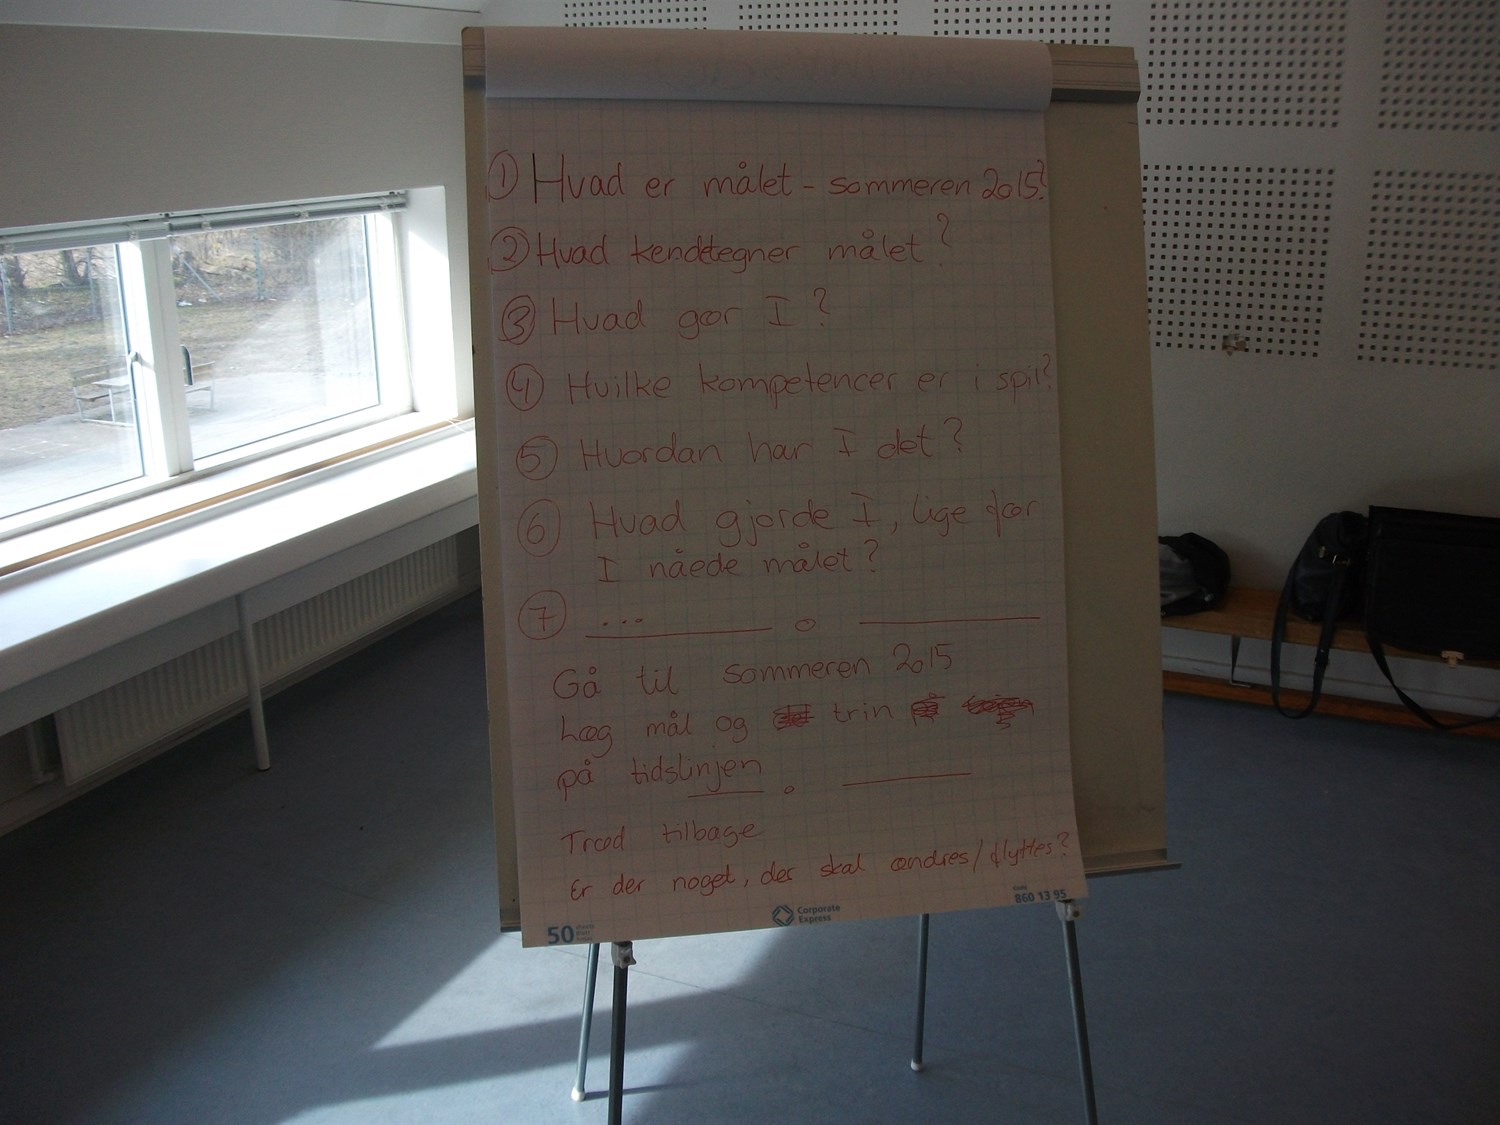 ① Hvad er målet - sommeren 2015?
② Hvad kendetegner målet?
③ Hvad gør I?
④ Hvilke kompetencer er i spil?
⑤ Hvordan har I det?
⑥ Hvad gjorde I, lige før
I nåede målet?
⑦ ...
Gå til sommeren 2015
Læg mål og trin
på tidslinjen
Træd tilbage
Er der noget, der skal ændres/flyttes?
50
Corporate
Express
860 13 95